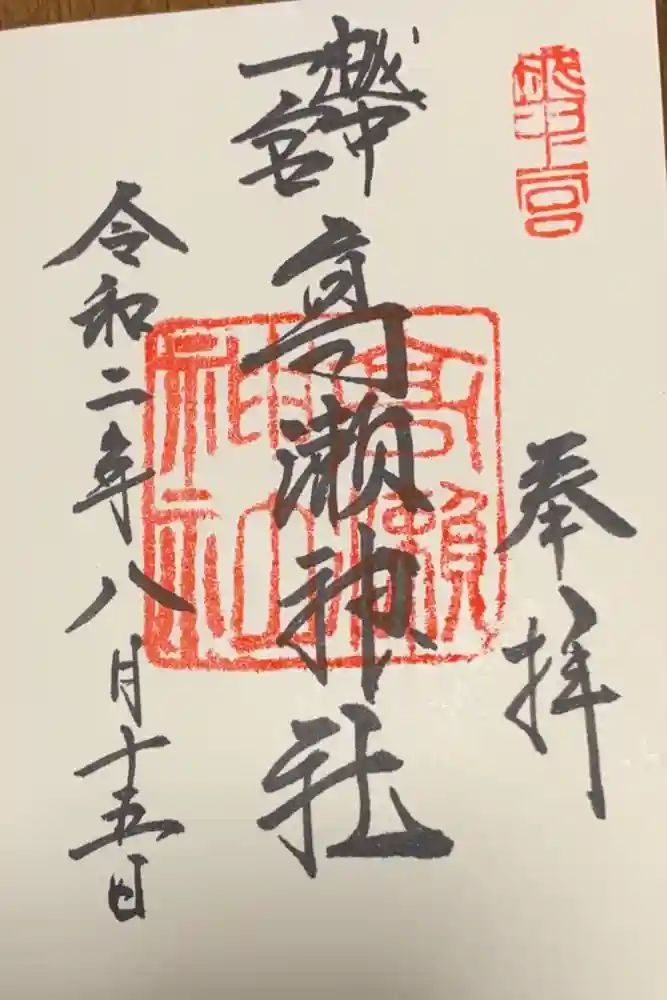 奉拝
越中
一宮
高瀬神社
高瀬神社
令和二年八月十五日